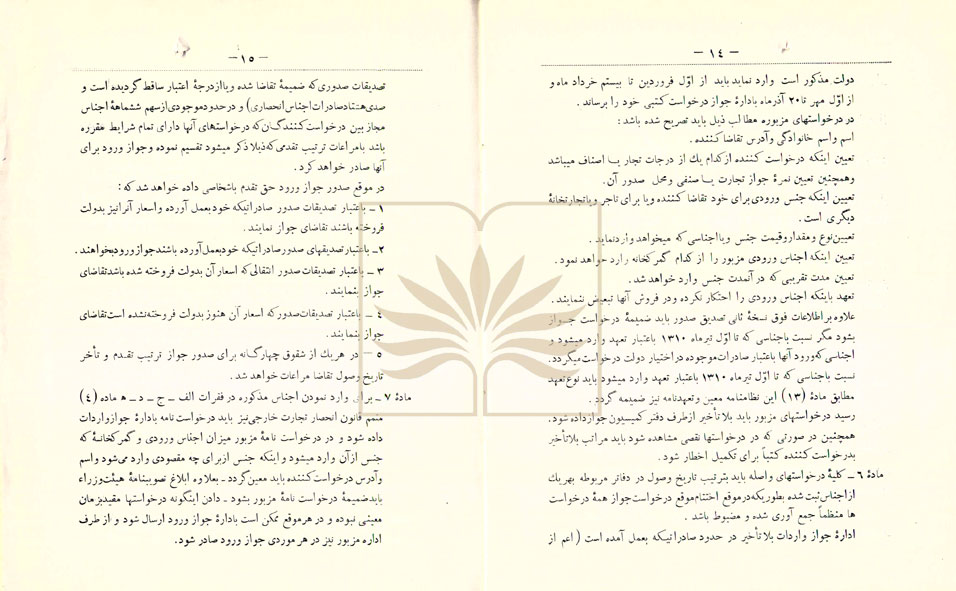 — ۱٤ —
دولت مذکور است وارد نماید باید از اوّل فروردین تا بیستم خرداد ماه و
از اوّل مهر تا ۲۰ آذرماه باداره جواز درخواست کتبی خود را برساند .
در درخواستهای مزبوره مطالب ذیل باید تصریح شده باشد :
اسم و اسم خانوادگی و آدرس تقاضا کننده .
تعیین اینکه درخواست کننده از کدام یك از درجات تجار یا اصناف میباشد
و همچنین تعیین نمرهٔ جواز تجارت یا صنفی و محل صدور آن.
تعیین اینکه جنس ورودی برای خود تقاضا کننده و یا برای تاجر و یا تجارتخانهٔ
دیگری است .
تعیین نوع و مقدار و قیمت جنس و یا اجناسی که میخواهد وارد نماید .
تعیین اینکه اجناس ورودی مزبور را از کدام گمرکخانه وارد خواهد نمود .
تعیین مدت تقریبی که در آنمدت جنس وارد خواهد شد .
تعهد باینکه اجناس ورودی را احتکار نکرده و در فروش آنها تبعیض ننمایند .
علاوه بر اطلاعات فوق نسخهٔ ثانی تصدیق صدور باید ضمیمهٔ درخواست جواز
بشود مگر نسبت باجناسی که تا اوّل تیرماه ۱۳۱۰ باعتبار تعهد وارد میشود و
اجناسی که ورود آنها باعتبار صادرات موجوده در اختیار دولت درخواست میگردد.
نسبت باجناسی که تا اوّل تیرماه ۱۳۱۰ باعتبار تعهد وارد میشود باید نوع تعهد
مطابق مادهٔ (۱۳) این نظامنامه معین و تعهدنامه نیز ضمیمه گردد .
رسید درخواستهای مزبور باید بلا تأخیر از طرف دفتر کمیسیون جواز داده شود .
همچنین در صورتی که در درخواستها نقصی مشاهده شود باید مراتب بلا تأخیر
بدرخواست کننده کتباً برای تکمیل اخطار شود .
مادهٔ ٦ ـ کلیهٔ درخواستهای واصله باید بترتیب تاریخ وصول در دفاتر مربوطه بهریك
از اجناس ثبت شده بطوریکه در موقع اختتام موقع درخواست جواز همهٔ درخواست
ها منظماً جمع آوری شده و مضبوط باشد .
ادارهٔ جواز واردات بلا تأخیر در حدود صادراتیکه بعمل آمده است ( اعم از
— ۱٥ —
تصدیقات صدوری که ضمیمهٔ تقاضا شده و یا از درجهٔ اعتبار ساقط گردیده است و
صدی هشتاد صادرات اجناس انحصاری ) و در حدود موجودی از سهم ششماههٔ اجناس
مجاز بین درخواست کنندگان که درخواستهای آنها دارای تمام شرایط مقرره
باشد با مراعات ترتیب تقدمی که ذیلا ذکر میشود تقسیم نموده و جواز ورود برای
آنها صادر خواهد کرد .
در موقع صدور جواز ورود حق تقدم باشخاصی داده خواهد شد که :
۱ ـ باعتبار تصدیقات صدور صادراتیکه خود بعمل آورده و اسعار آنرا نیز بدولت
فروخته باشند تقاضای جواز نمایند .
۲ـ باعتبار تصدیقهای صدور صادراتیکه خود بعمل آورده باشند جواز ورود بخواهند .
۳ ـ باعتبار تصدیقات صدور انتقالی که اسعار آن بدولت فروخته شده باشد تقاضای
جواز بنمایند .
٤ ـ باعتبار تصدیقات صدور که اسعار آن هنوز بدولت فروخته نشده است تقاضای
جواز بنمایند .
٥ ـ در هریك از شقوق چهارگانه برای صدور جواز ترتیب تقدم و تأخر
تاریخ وصول تقاضا مراعات خواهد شد .
مادهٔ ۷ ـ برای وارد نمودن اجناس مذکوره در فقرات الف ـ ج ـ د ـ ه ماده (٤)
متمم قانون انحصار تجارت خارجی نیز باید درخواست نامه بادارهٔ جواز واردات
داده شود و در درخواست نامهٔ مزبور میزان اجناس ورودی و گمرکخانهٔ که
جنس از آن وارد میشود و اینکه جنس از برای چه مقصودی وارد می‌شود و اسم
و آدرس درخواست کننده باید معین گردد ـ بعلاوه ابلاغ تصویبنامهٔ هیئت وزراء
باید ضمیمهٔ درخواست نامهٔ مزبور بشود ـ دادن اینگونه درخواستها مقید بزمان
معینی نبوده و در هر موقع ممکن است بادارهٔ جواز ورود ارسال شود و از طرف
اداره مزبور نیز در هر موردی جواز ورود صادر شود.